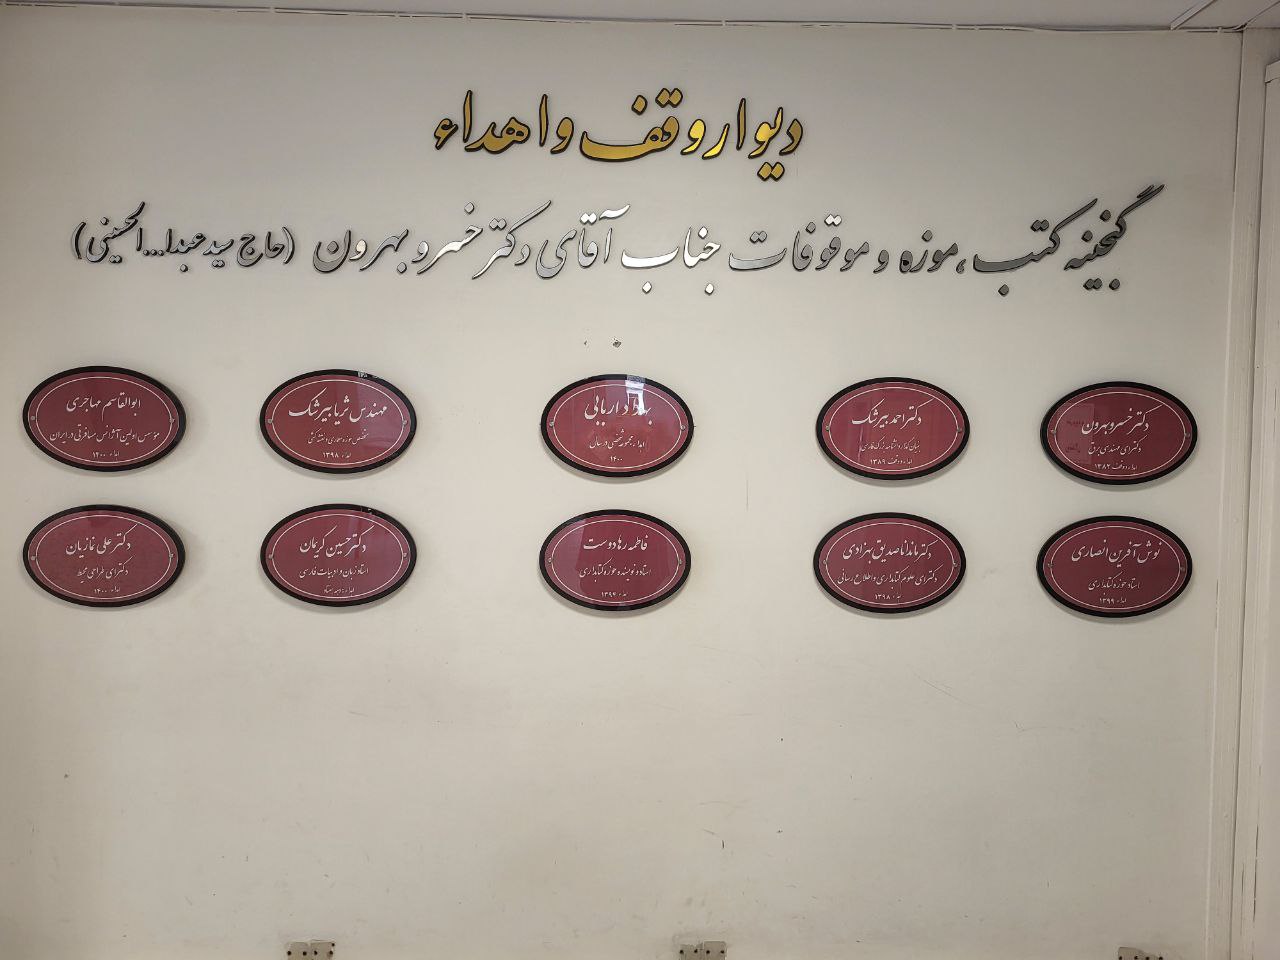 دیوار وقف و اهداء
گنجینه کتب، موزه و موقوفات جناب آقای دکتر خسرو بهرون (حاج سید عبدا...الحسینی)
دکتر خسرو بهرون
دکترای مهندسی برق
اهداء و وقف ۱۳۸۲
دکتر احمد بیرشک
بنیان گذار دانشنامه بزرگ فارسی
اهداء و وقف ۱۳۸۹
بهزاد اربابی
اهداء مجموعه شخصی در سال
۱۴۰۰
مهندس ثریا بیرشک
متخصص حوزه معماری و نقشه کشی
اهداء ۱۳۹۸
ابوالقاسم مهاجری
مؤسس اولین آژانس مسافرتی در ایران
اهداء ۱۴۰۰
نوش آفرین انصاری
استاد حوزه کتابداری
اهداء ۱۳۹۹
دکتر ماندانا صدیق بهزادی
دکترای علوم کتابداری و اطلاع رسانی
اهداء ۱۳۹۸
فاطمه رهادوست
استاد و نویسنده حوزه کتابداری
اهداء ۱۳۹۴
دکتر حسین کریمان
استاد زبان و ادبیات فارسی
اهداء
دکتر علی نمازیان
دکترای طراحی محیط
اهداء ۱۴۰۰